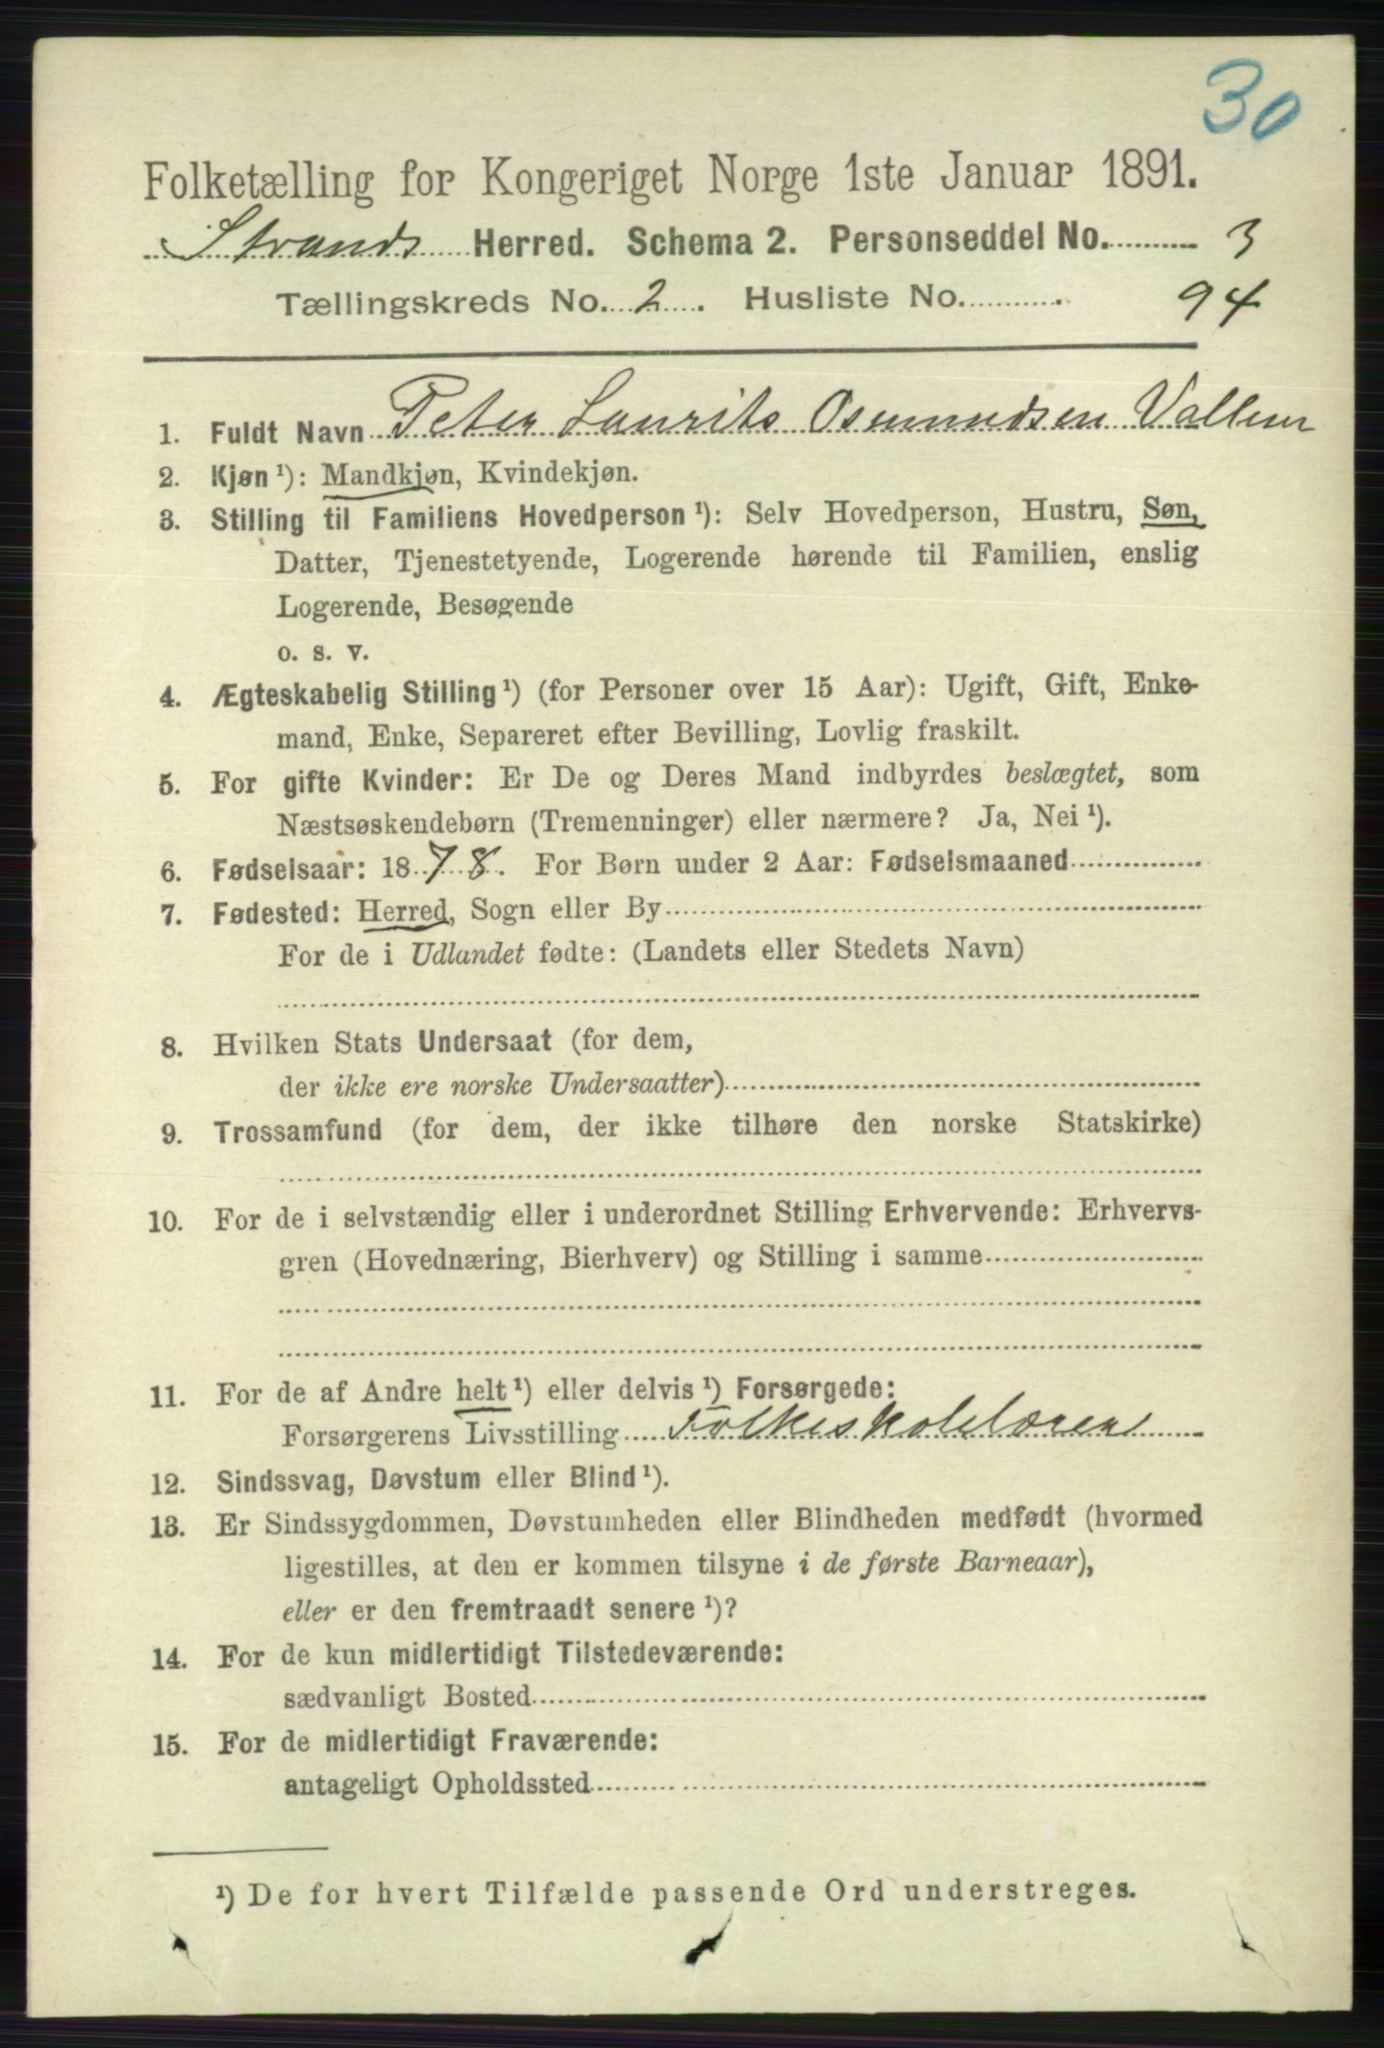 30
Folketælling for Kongeriget Norge 1ste Januar 1891.
Strands Herred. Schema 2. Personseddel No. 3
Tællingskreds No. 2. Husliste No. 94
1. Fuldt Navn Peter Laurits Osmundsen Vallem
2. Kjøn ¹): Mandkjøn, Kvindekjøn.
3. Stilling til Familiens Hovedperson ¹): Selv Hovedperson, Hustru, Søn,
Datter, Tjenestetyende, Logerende hørende til Familien, enslig
Logerende, Besøgende
o. s. v.
4. Ægteskabelig Stilling ¹) (for Personer over 15 Aar): Ugift, Gift, Enke-
mand, Enke, Separeret efter Bevilling, Lovlig fraskilt.
5. For gifte Kvinder: Er De og Deres Mand indbyrdes beslægtet, som
Næstsøskendebørn (Tremenninger) eller nærmere? Ja, Nei ¹).
6. Fødselsaar: 1878. For Børn under 2 Aar: Fødselsmaaned
7. Fødested: Herred, Sogn eller By
For de i Udlandet fødte: (Landets eller Stedets Navn)
8. Hvilken Stats Undersaat (for dem,
der ikke ere norske Undersaatter)
9. Trossamfund (for dem, der ikke tilhøre den norske Statskirke)
10. For de i selvstændig eller i underordnet Stilling Erhvervende: Erhvervs-
gren (Hovednæring, Bierhverv) og Stilling i samme
11. For de af Andre helt ¹) eller delvis ¹) Forsørgede:
Forsørgerens Livsstilling Folkeskolelærer
12. Sindssvag, Døvstum eller Blind ¹).
13. Er Sindssygdommen, Døvstumheden eller Blindheden medfødt (hvormed
ligestilles, at den er kommen tilsyne i de første Barneaar),
eller er den fremtraadt senere ¹)?
14. For de kun midlertidigt Tilstedeværende:
sædvanligt Bosted
15. For de midlertidigt Fraværende:
antageligt Opholdssted
¹) De for hvert Tilfælde passende Ord understreges.